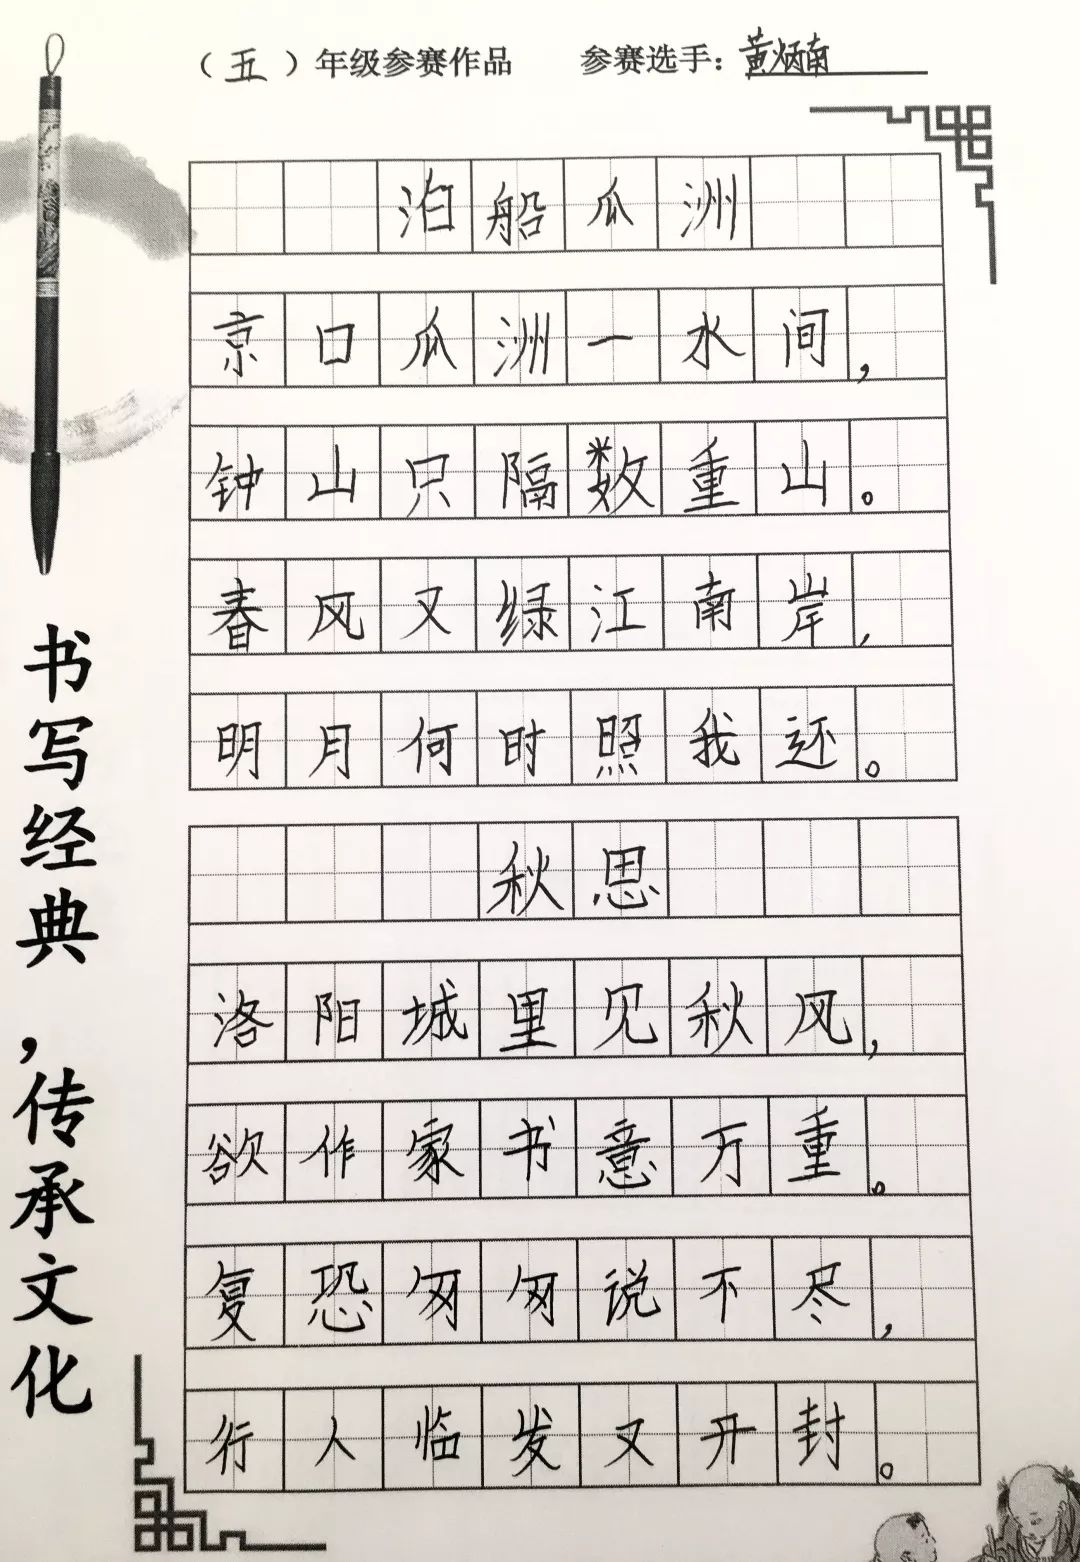 （五）年级参赛作品 参赛选手：黄炳南
泊船瓜洲
京口瓜洲一水间，
钟山只隔数重山。
春风又绿江南岸，
明月何时照我还。
秋思
洛阳城里见秋风，
欲作家书意万重。
复恐匆匆说不尽，
行人临发又开封。
书写经典，传承文化